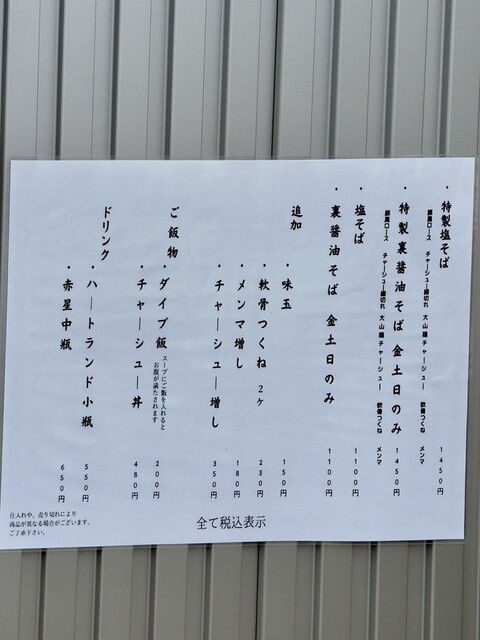 ・特製塩そば 1450円
豚肩ロース チャーシュー端切れ 大山鶏チャーシュー 軟骨つくね メンマ
・特製裏醤油そば 金土日のみ 1450円
豚肩ロース チャーシュー端切れ 大山鶏チャーシュー 軟骨つくね メンマ
・塩そば 1100円
・裏醤油そば 金土日のみ 1100円
追加
・味玉 150円
・軟骨つくね 2ケ 230円
・メンマ増し 180円
・チャーシュー増し 350円
ご飯物
・ダイブ飯 200円
スープにご飯を入れると
お腹が満たされます
・チャーシュー丼 480円
ドリンク
・ハートランド小瓶 550円
・赤星中瓶 650円
全て税込表示
仕入れや、売り切れにより
商品が異なる場合がございます。
ご了承下さい。